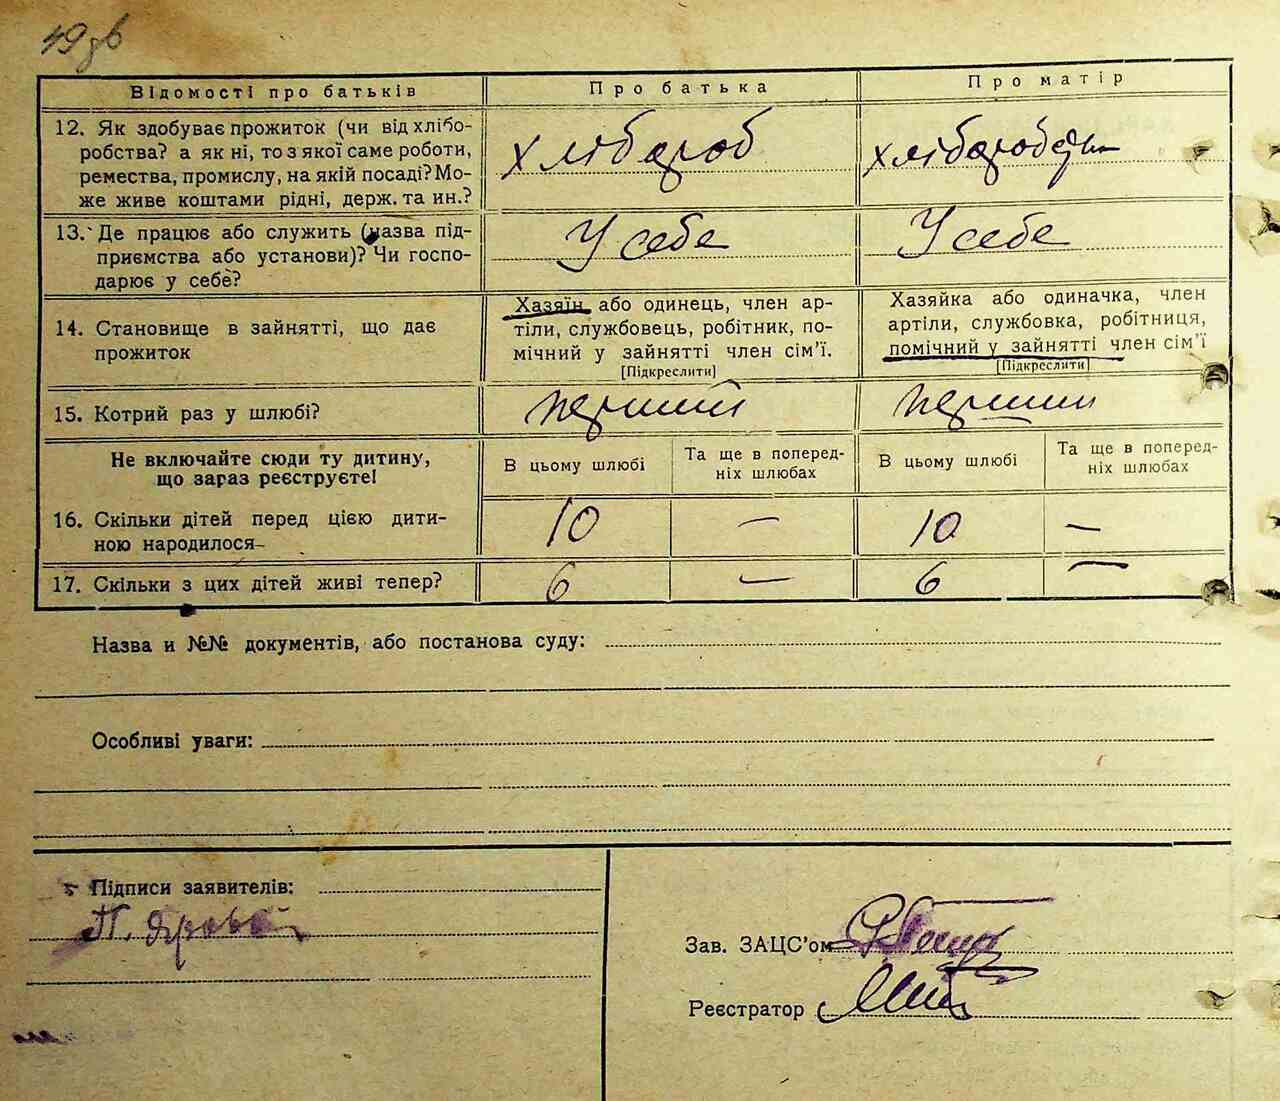 49 зв
Відомості про батьків
Про батька
Про матір
12. Як здобуває прожиток (чи від хлібо-
робства? а як ні, то з якої саме роботи,
ремества, промислу, на якій посаді? Мо-
же живе коштами рідні, держ. та ин.?
хлібороб
13. Де працює або служить (назва під-
приємства або установи)? Чи госпо-
дарює у себе?
У себе
У себе
14. Становище в зайнятті, що дає
прожиток
Хазяїн або одинець, член ар-
тіли, службовець, робітник, по-
мічний у зайнятті член сім'ї.
[Підкреслити]
Хазяйка або одиначка, член
артіли, службовка, робітниця,
помічний у зайнятті член сім'ї
[Підкреслити]
15. Котрий раз у шлюбі?
перший
перший
Не включайте сюди ту дитину,
що зараз реєструєте!
В цьому шлюбі
Та ще в поперед-
ніх шлюбах
В цьому шлюбі
Та ще в поперед-
ніх шлюбах
16. Скільки дітей перед цією дити-
ною народилося-
10
—
10
—
17. Скільки з цих дітей живі тепер?
6
—
6
—
Назва и №№ документів, або постанова суду:
Особливі уваги:
Підписи заявителів:
Зав. ЗАЦС'ом
Реєстратор